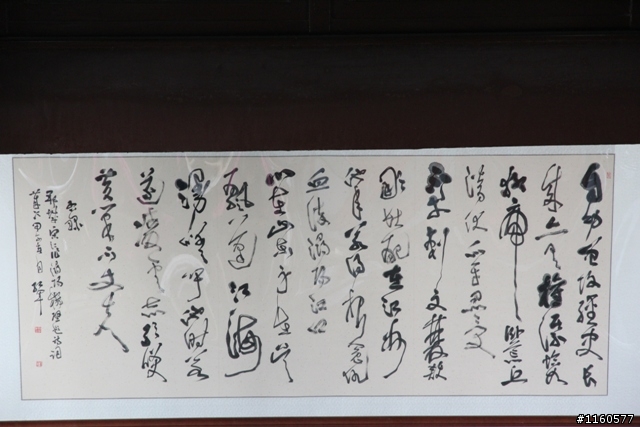 自幼曾攻經史長
成亦有權謀恰
如猛虎卧荒丘
潛伏爪牙忍受
不幸刺文雙頰
那堪配在江州
他年若得報冤仇
血染潯陽江口
心在山東身在吳
飄蓬江海
謾嗟吁他時若
遂凌雲志敢笑
黃巢不丈夫
#1160577